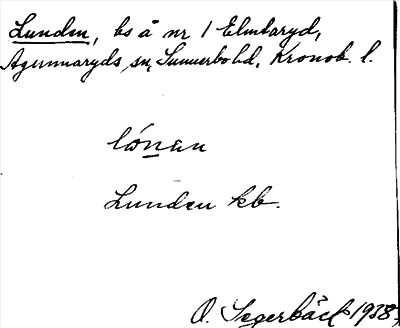 Lunden, bs å nr 1 Elmtaryd,
Agunnaryds sn, Sunnerbo hd, Kronob. l.
lónan
Lunden kb.
O. Segerbäck 1938.